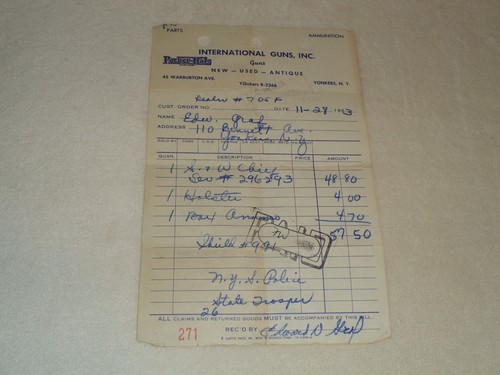 PARTS AMMUNITION
INTERNATIONAL GUNS, INC.
Guns
NEW — USED — ANTIQUE
45 WARBURTON AVE. YOnkers 8-2366 YONKERS, N. Y.
Dealer # 705 F
CUST. ORDER NO. DATE 11-27
NAME Edw. Graf
ADDRESS 110 Bennett Ave.
Yonkers N.Y
SOLD BY
QUAN. DESCRIPTION PRICE AMOUNT
1 S & W Chief
Ser # 296293 48 80
1 Holster 4 00
1 Box Ammo 4 70
57 50
Shield #
N.Y.S. Police
State Trooper
26
ALL CLAIMS AND RETURNED GOODS MUST BE ACCOMPANIED BY THIS BILL.
271 REC'D BY Edward D Graf